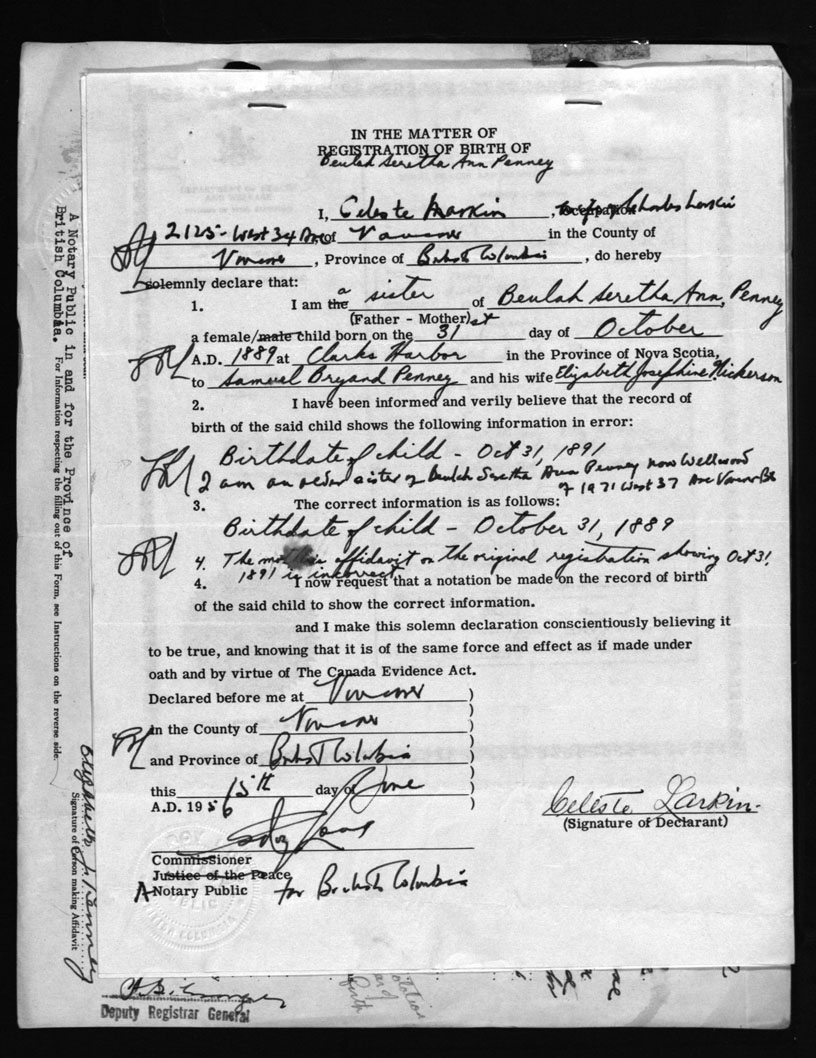 IN THE MATTER OF
REGISTRATION OF BIRTH OF
Beulah Seretha Ann Penney
I, Celeste Larkin, Occupation Charles Larkin
2125 - West 34 Ave of Vancouver in the County of
Vancouver, Province of British Columbia, do hereby
solemnly declare that:
1. I am the a sister of Beulah Seretha Ann, Penney
(Father - Mother)
a female/male child born on the 31st day of October
A.D. 1889 at Clarks Harbor in the Province of Nova Scotia,
to Samuel Bryand Penney and his wife Elizabeth Josephine Nickerson
2. I have been informed and verily believe that the record of
birth of the said child shows the following information in error:
Birthdate of child - Oct 31, 1891
I am an older sister of Beulah Seretha Ann Penney now Wellwood
of 1971 West 37 Ave Vancr BC
3. The correct information is as follows:
Birthdate of child - October 31, 1889
4. The affidavit on the original registration showing Oct 31,
1891 is incorrect
4. I now request that a notation be made on the record of birth
of the said child to show the correct information.
and I make this solemn declaration conscientiously believing it
to be true, and knowing that it is of the same force and effect as if made under
oath and by virtue of The Canada Evidence Act.
Declared before me at Vancouver )
in the County of Vancouver )
and Province of British Columbia )
this 15th day of June )
A.D. 1956 )
Celeste Larkin.
(Signature of Declarant)
Commissioner
Justice of the Peace
A Notary Public for British Columbia
Deputy Registrar General
A Notary Public in and for the Province of
British Columbia.
For Information respecting the filling out of this Form, see Instructions on the reverse side.
Elizabeth J. Penney
Signature of Person making Affidavit